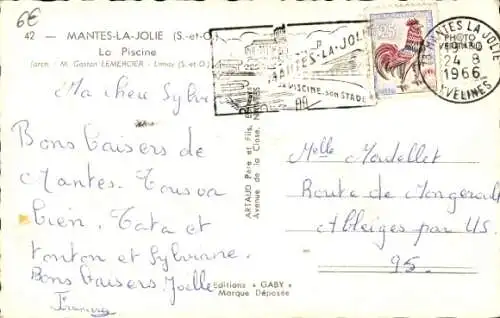 6€
42 - MANTES-LA-JOLIE (S.-et-O.)
La Piscine
(arch. : M. Gaston LEMERCIER - Limay (S.-et-O.)
MANTES-LA-JOLIE
SA PISCINE-son STADE
25
MANTES LA JOLIE
24 - 8
1966
YVELINES
Ma chère Sylvi
Bons baisers de
Mantes. Tous va
bien. Tata et
tonton et Sylviane.
Bons baisers Joelle
ARTAUD Père et Fils, Editeurs
Avenue de la Close, NANTES
Editions « GABY »
Marque Déposée
Melle
Route de
Ableiges par US.
95.